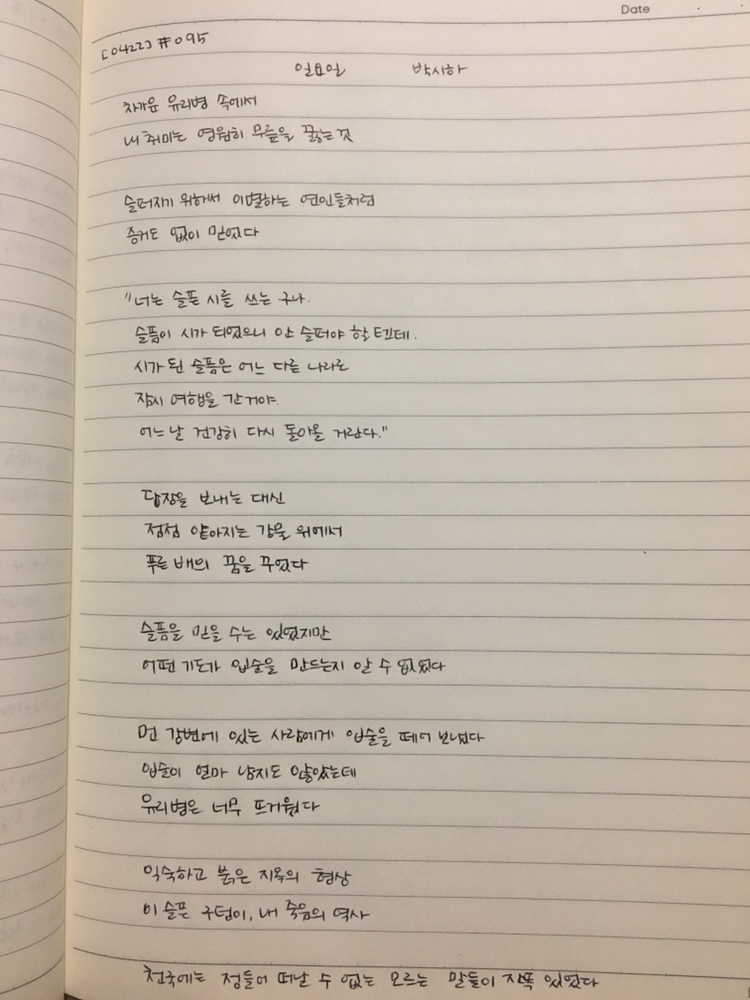 Date
[0422] #095
일요일 박시하
차가운 유리병 속에서
내 취미는 영원히 무릎을 꿇는 것
슬퍼지기 위해서 이별하는 연인들처럼
증거도 없이 믿었다
"너는 슬픈 시를 쓰는 구나.
슬픔이 시가 되었으니 안 슬퍼야 할 텐데.
시가 된 슬픔은 어느 다른 나라로
잠시 여행을 간 거야.
어느 날 건강히 다시 돌아올 거란다."
답장을 보내는 대신
점점 얕아지는 강물 위에서
푸른 배의 꿈을 꾸었다
슬픔을 믿을 수는 있었지만
어떤 기도가 입술을 만드는지 알 수 없었다
먼 강변에 있는 사람에게 입술을 떼어 보냈다
입술이 얼마 남지도 않았는데
유리병은 너무 뜨거웠다
익숙하고 붉은 지옥의 형상
이 슬픈 구덩이, 내 죽음의 역사
천국에는 정들어 떠날 수 없는 모르는 말들이 잔뜩 있었다